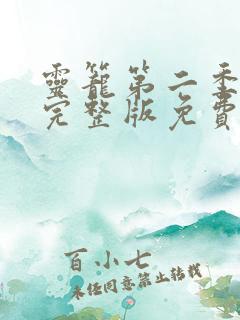 靈籠第二季
完整版免費
百小七
未经同意禁止转载